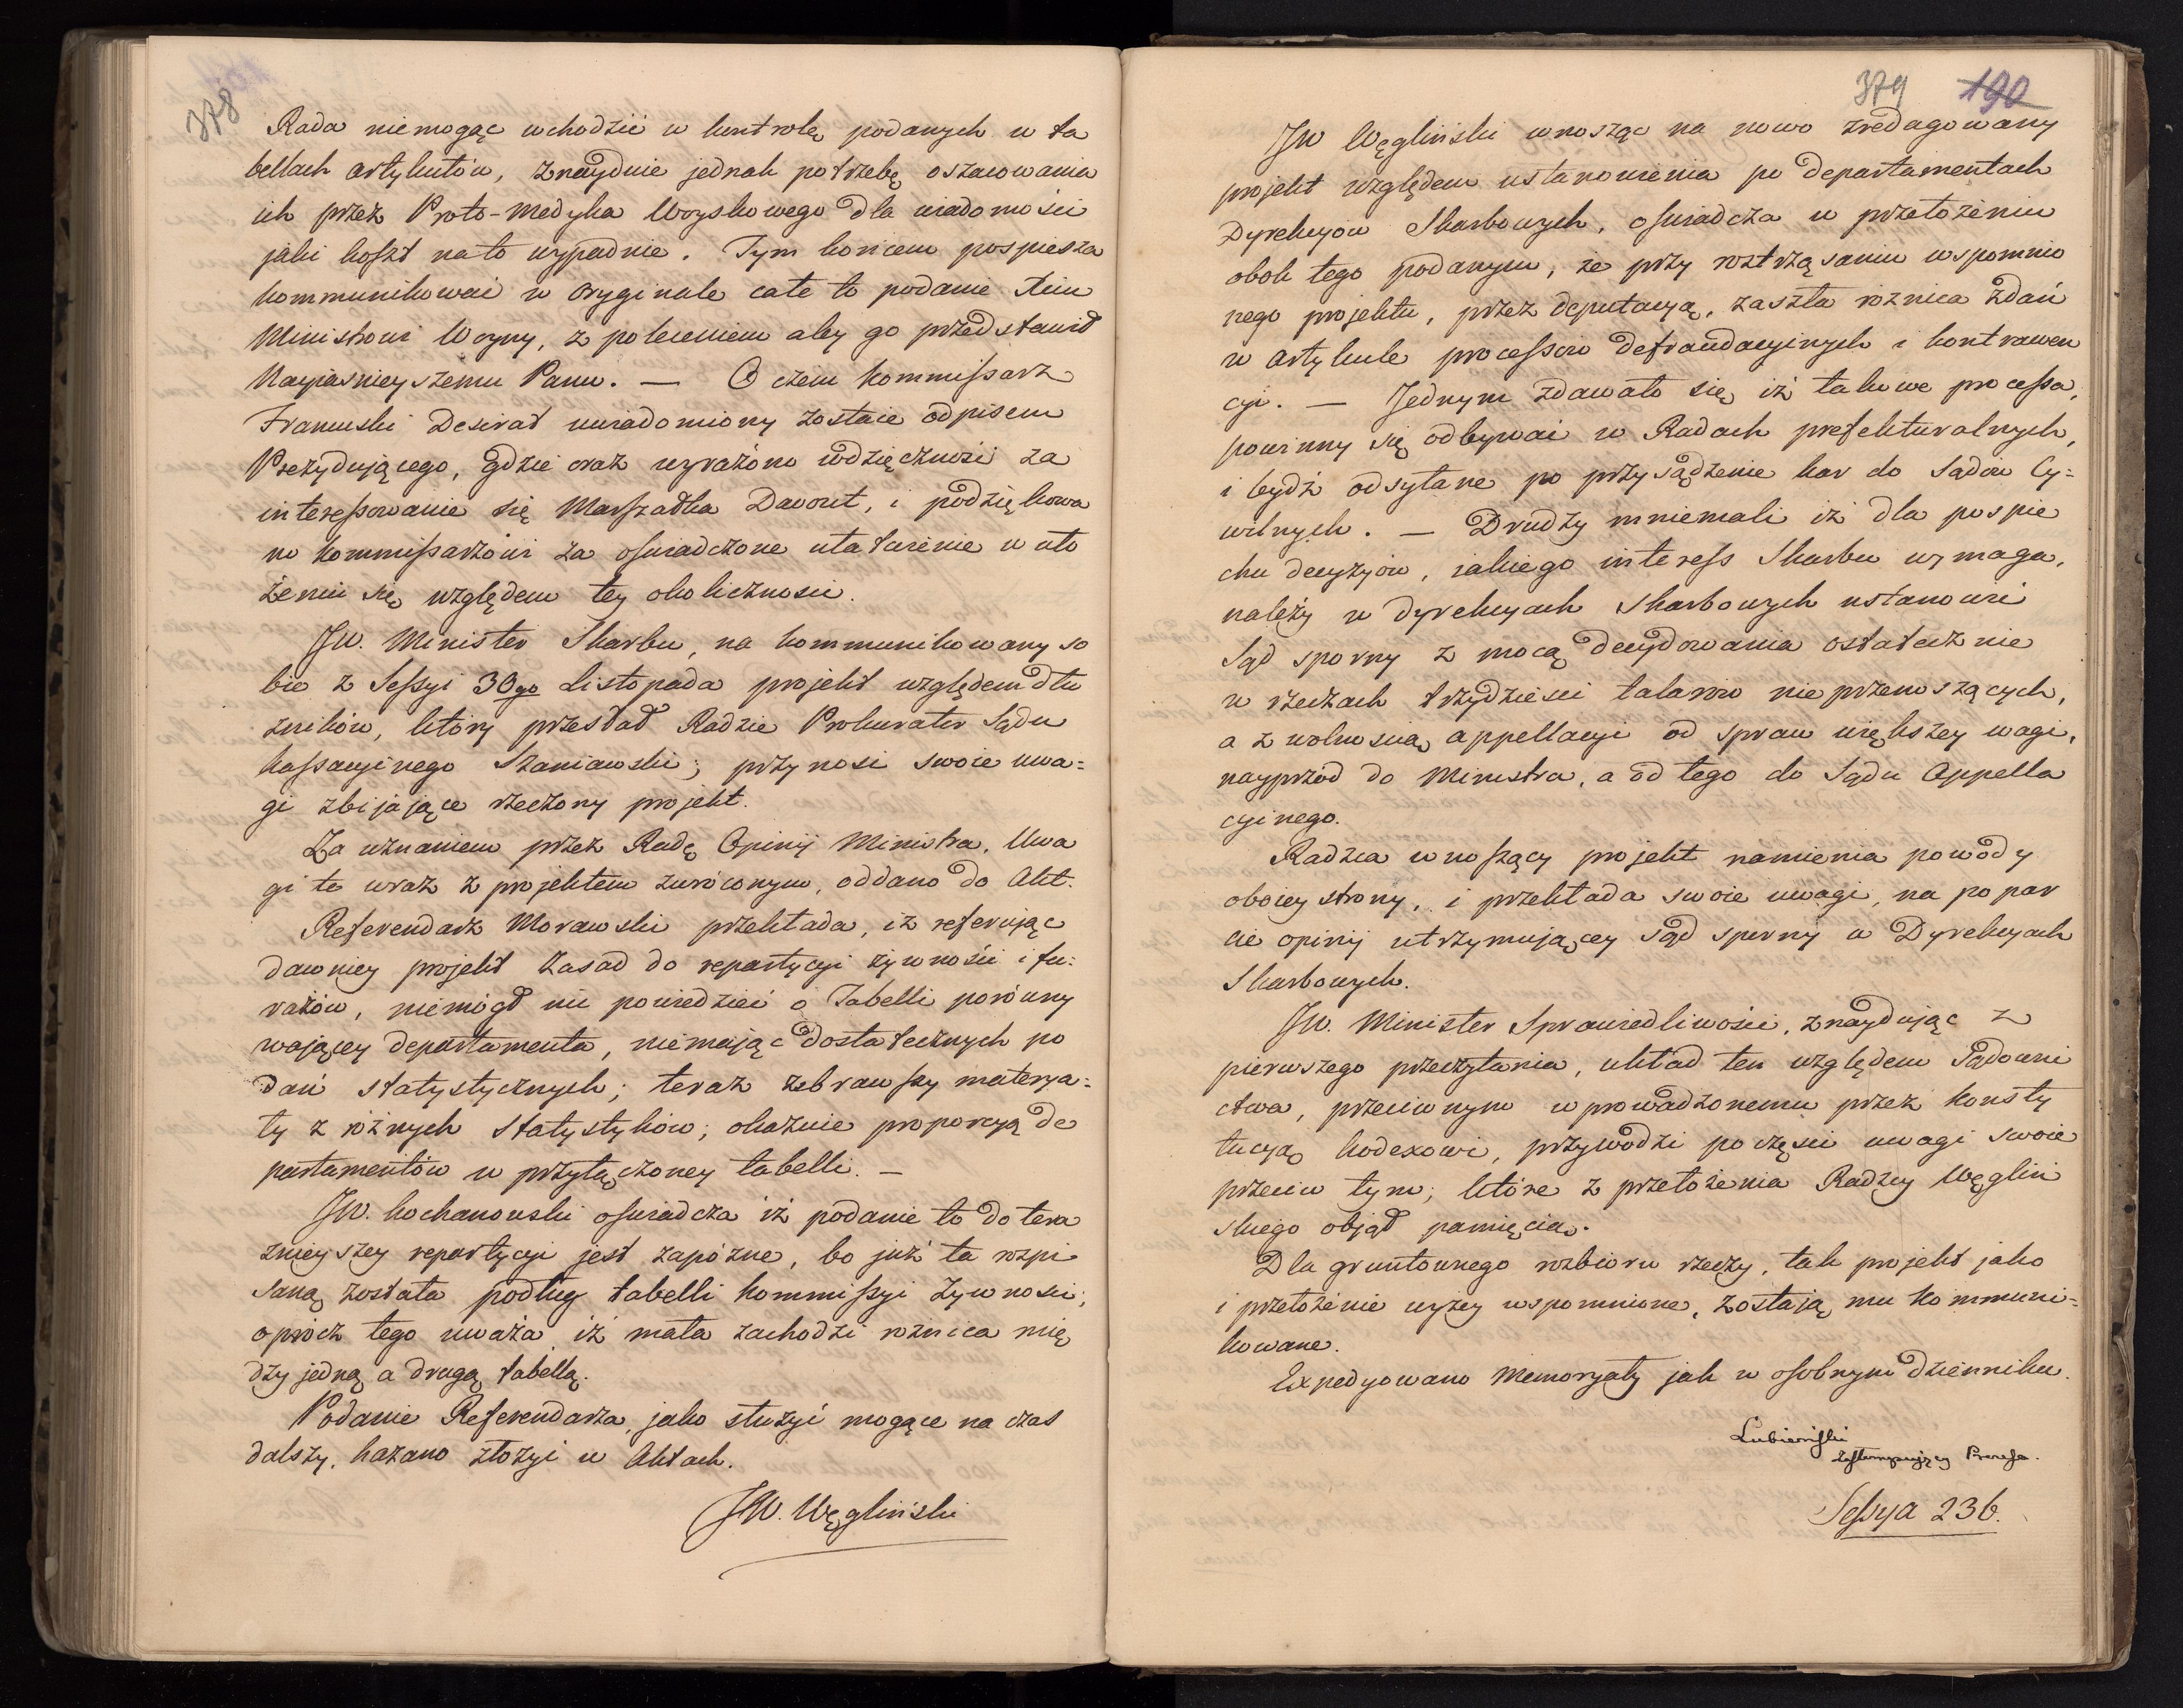 378
Rada niemogąc wchodzić w kontrolę podanych w ta
bellach artykułów, znayduie jednak potrzebę oszacowania
ich przez Proto-Medyka Woyskowego dla wiadomości
jaki koszt na to wypadnie. Tym końcem pospiesza
kommunikować w oryginale całe to podanie
Ministrowi Woyny, z poleceniem aby go przedstawił
Nayiaśnieyszemu Panu. — O czem Kommissarz
Francuski Desirat uwiadomiony zostaie odpisem
Prezydującego, gdzie oraz wyrażono wdzięczność za
interessowanie się Marszałka Davout, i podzięko wa
no Kommissarzowi za oświadczone ułatwienie w uło
żeniu się względem tey okoliczności.
JW. Minister Skarbu, na kommunikowany so
bie z Sessyi 30go Listopada projekt względem dłu
żników, który przesłał Radzie Prokurator Sądu
Kassacyinego Szaniawski; przynosi swoie uwa=
gi zbijające rzeczony projekt.
Za uznaniem przez Radę Opinij Ministra, Uwa
gi te wraz z projektem zwróconym, oddano do Akt.
Referendarz Morawski przekłada, iż referując
dawniey projekt zasad do repartycyi żywności i fu=
rażów, niemógł nic powiedzieć o Tabelli porówny
wającey departamenta, niemając dostatecznych po
dań statystycznych; teraz zebrawszy materya=
ły z różnych statystyków; okazuie proporcyą de
partamentów w przyłączoney tabelli. —
JW. Kochanowski oświadcza iż podanie to do tera
znieyszey repartycyi jest zapóźne, bo już ta rozpi
saną została podług tabelli Kommissyi żywności;
oprócz tego uważa iż mała zachodzi różnica mię
dzy jedną a drugą tabellą.
Podanie Referendarza, jako służyć mogące na czas
dalszy, kazano złożyć w Aktach.
JW. Węgliński
379 190
JW Węgliński wnosząc na nowo zredagowany
projekt względem ustanowienia po departamentach
Dyrekcyow Skarbowych, oświadcza w przełożeniu
obok tego podanym, że przy roztrząsaniu wspomnio
nego projektu, przez deputacyą, zaszła roznica zdań
w artykule processow defraudacyinych i kontrawen
cyi. — Jednym zdawało się iż takowe processa,
powinny się odbywać w Radach prefekturalnych,
i bydź odsyłane po przysądzenie kar do Sądow Cy=
wilnych. — Drudzy mniemali iż dla pospie
chu decyzyow, iakiego interess Skarbu wymaga,
należy w dyrekcyach skarbowych ustanowić
Sąd sporny z mocą decydowania ostatecznie
w rzeczach trzydzieści talarow nieprzenoszących,
a z wolnością appellacyi od spraw większey wagi,
nayprzód do Ministra, a od tego do Sądu Appella
cyinego.
Radzca wnoszący projekt namienia powody
oboiey strony, i przekłada swoie uwagi, na popar
cie opinij utrzymującey sąd sporny w Dyrekcyach
Skarbowych.
JW. Minister Sprawiedliwości, znaydując z
pierwszego przeczytania, układ ten względem Sądowni
ctwa, przeciwnym wprowadzonemu przez Konsty
tucyą kodexowi, przywodzi po części uwagi swoie
przeciw tym, które z przełożenia Radzcy Węgliń
skiego objął pamięcią.
Dla gruntownego rozbioru rzeczy, tak projekt jako
i przełożenie wyżey wspomnione, zostają mu kommuni=
kowane.
Expedyowano Memoryały jak w osobnym dzienniku.
Lubieński
Zastempuiący Prezesa.
Sessya 236.